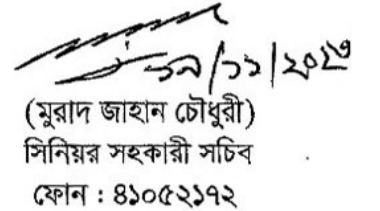 ১৯/১১/২০২৩
(মুরাদ জাহান চৌধুরী)
সিনিয়র সহকারী সচিব
ফোন : ৪১০৫২১৭২